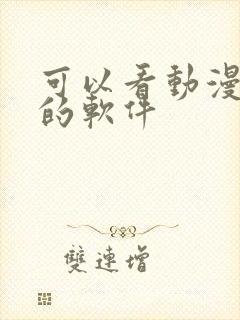 可以看動漫
的軟件
雙連增